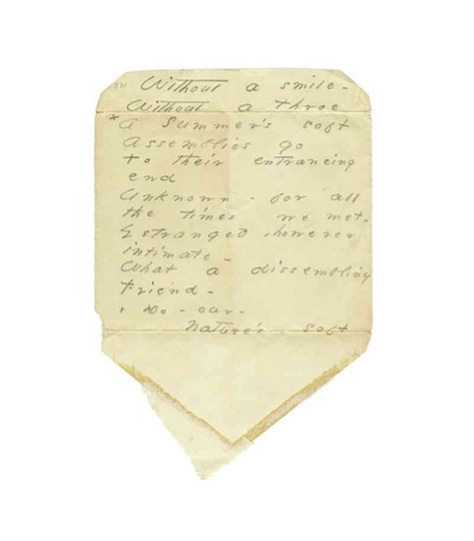 Without a smile -
Without a throe
* A Summer's soft
Assemblies go
to their entrancing
end
Unknown - for all
the times we met -
Estranged - however
intimate -
What a dissembling
Friend -
Do - our -
Nature's soft